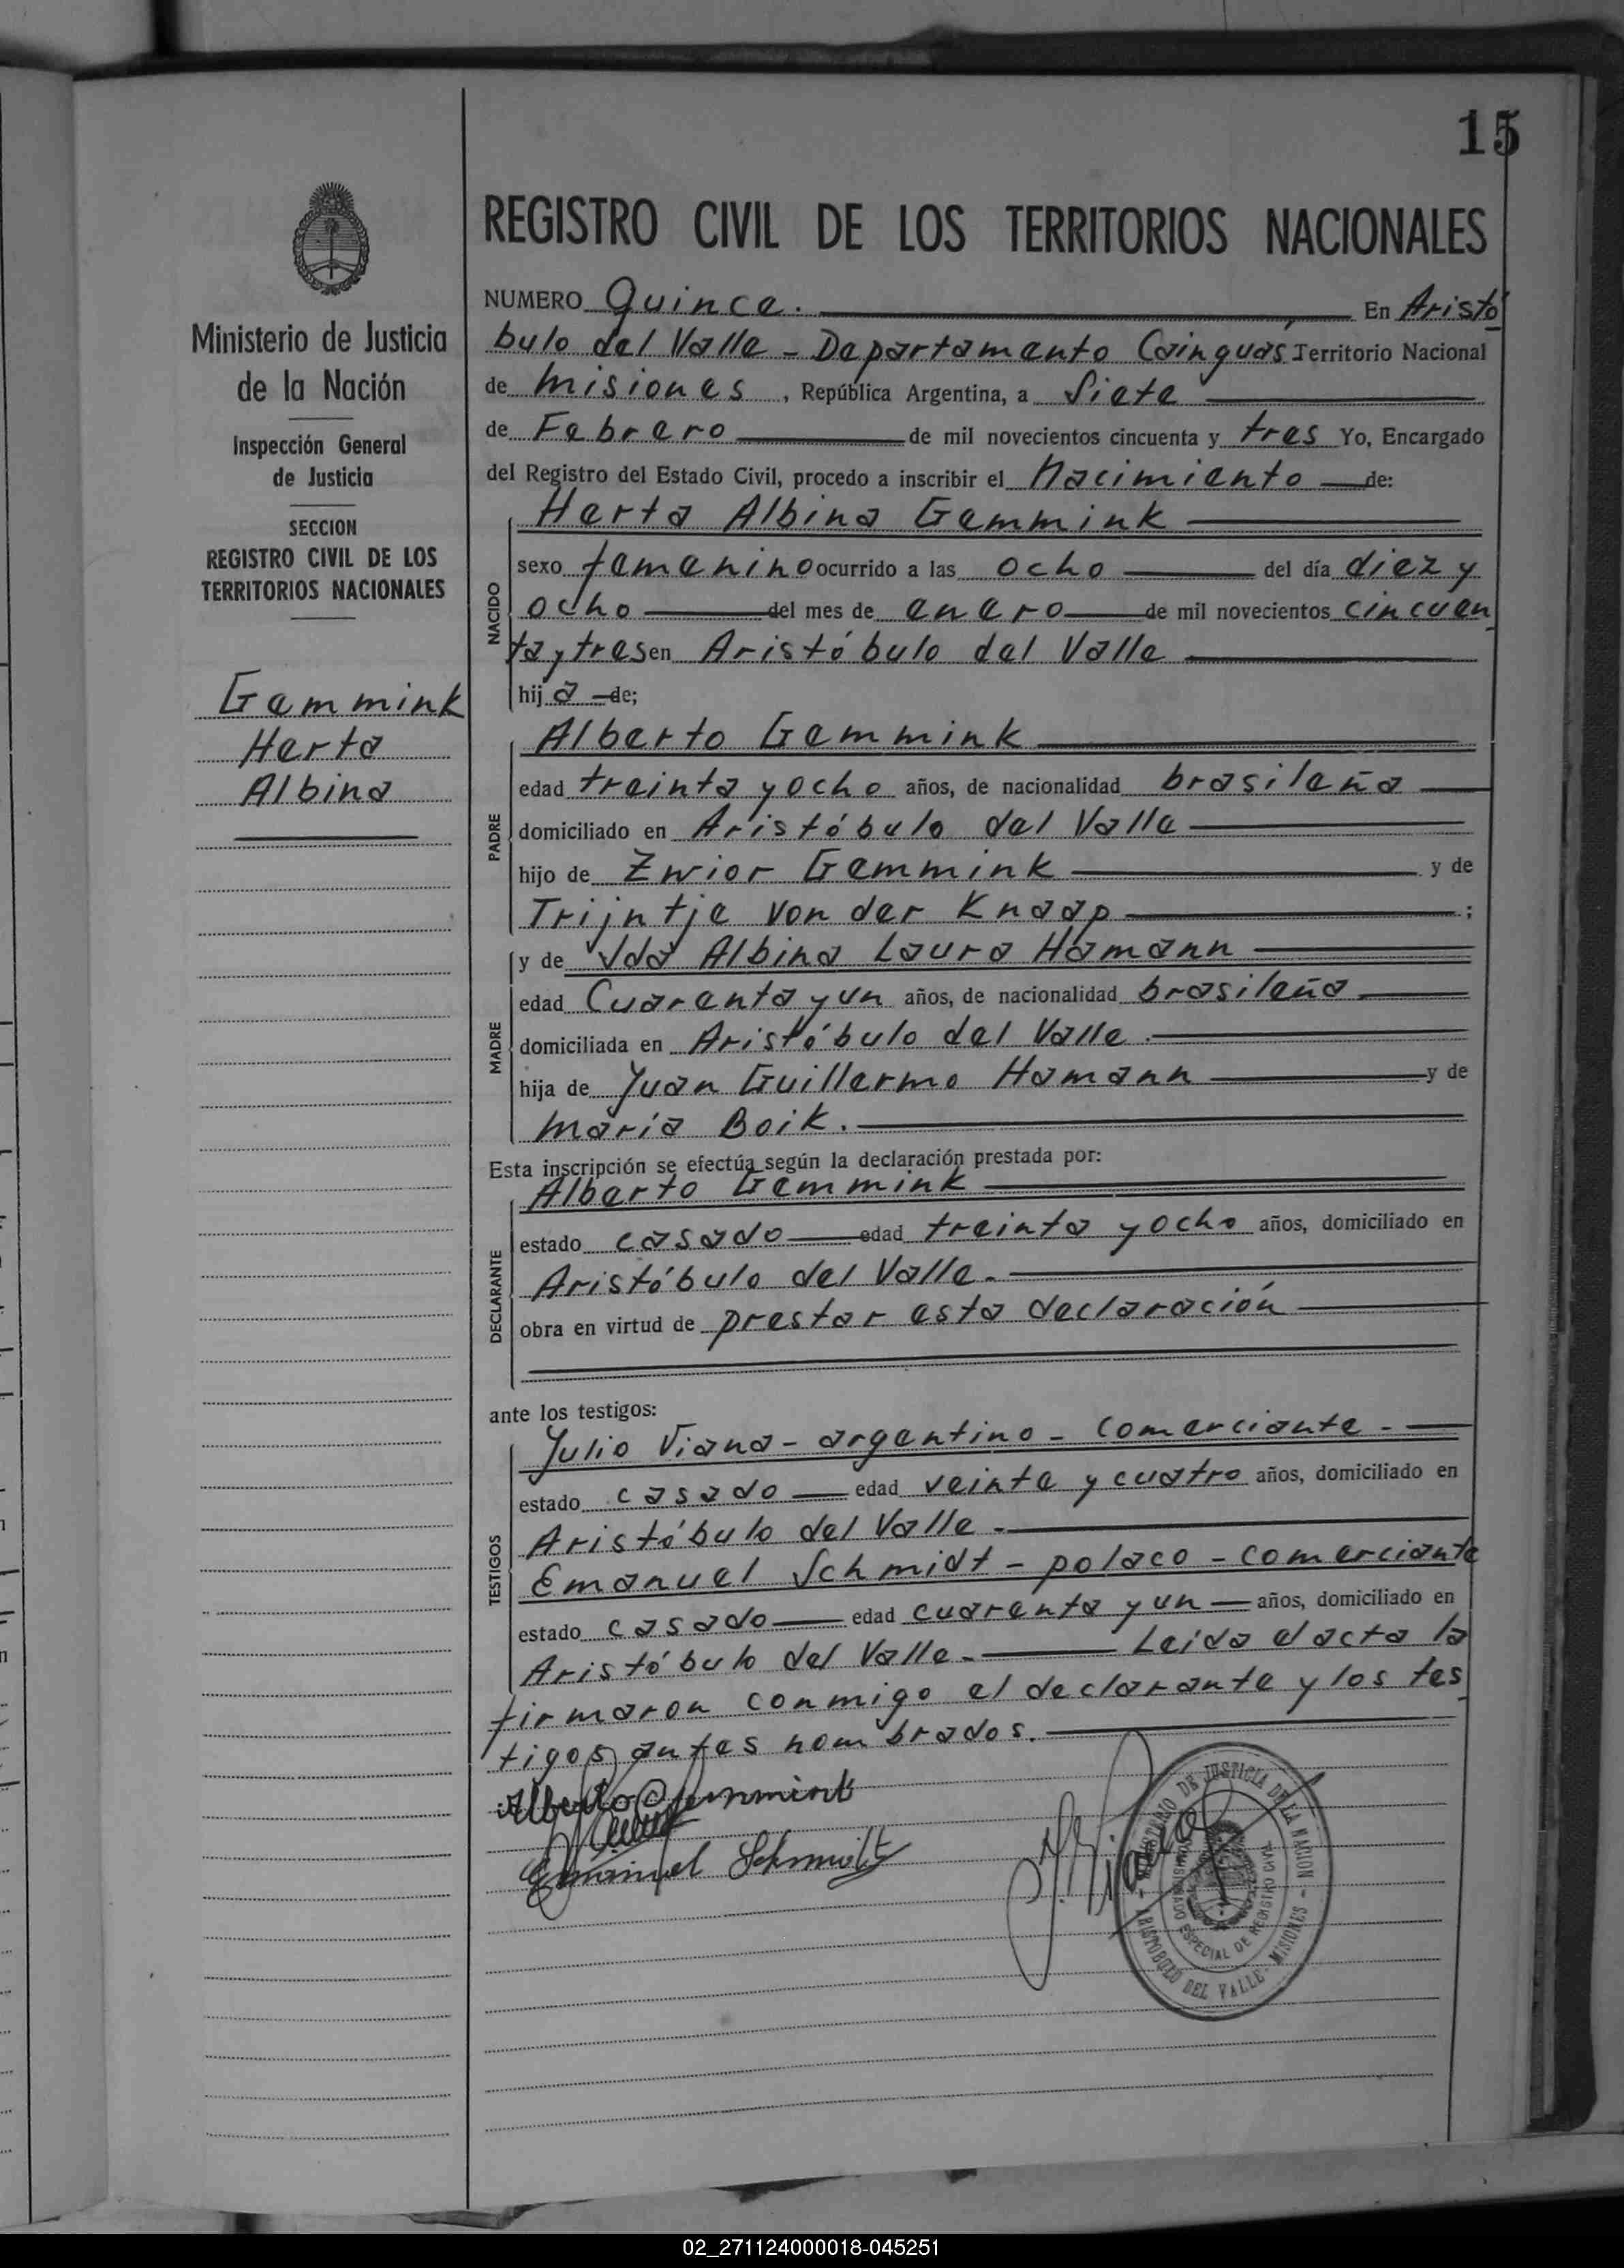 15
Ministerio de Justicia
de la Nación
Inspección General
de Justicia
SECCION
REGISTRO CIVIL DE LOS
TERRITORIOS NACIONALES
Gemmink
Herta
Albina
REGISTRO CIVIL DE LOS TERRITORIOS NACIONALES
NUMERO Quince. En Aristó
bulo del Valle - Departamento Cainguás Territorio Nacional
de Misiones, República Argentina, a Siete
de Febrero de mil novecientos cincuenta y tres Yo, Encargado
del Registro del Estado Civil, procedo a inscribir el Nacimiento de:
NACIDO
Herta Albina Gemmink
sexo femenino ocurrido a las ocho del día diez y
ocho del mes de enero de mil novecientos cincuen
ta y tres en Aristóbulo del Valle
hija de;
PADRE
Alberto Gemmink
edad treinta y ocho años, de nacionalidad brasileña
domiciliado en Aristóbulo del Valle
hijo de Zwior Gemmink y de
Trijntje von der Knaap ;
MADRE
y de Ida Albina Laura Hamann
edad Cuarenta y un años, de nacionalidad brasileña
domiciliada en Aristóbulo del Valle.
hija de Juan Guillermo Hamann y de
María Boik.
Esta inscripción se efectúa según la declaración prestada por:
DECLARANTE
Alberto Gemmink
estado casado edad treinta y ocho años, domiciliado en
Aristóbulo del Valle.
obra en virtud de prestar esta declaración
ante los testigos:
TESTIGOS
Julio Viana - argentino - comerciante.
estado casado edad veinte y cuatro años, domiciliado en
Aristóbulo del Valle.
Emanuel Schmidt - polaco - comerciante
estado casado edad cuarenta y un años, domiciliado en
Aristóbulo del Valle. Leida el acta la
firmaron conmigo el declarante y los tes
tigos antes nombrados.
Alberto Gemmink
Emanuel Schmidt
MINISTERIO DE JUSTICIA DE LA NACION
ESPECIAL DE REGISTRO CIVIL
ARISTOBULO DEL VALLE - MISIONES
02_271124000018-045251